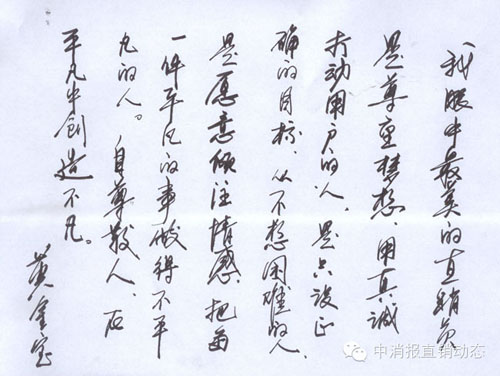 我眼中最美的直销员
是尊重梦想、用真诚
打动用户的人、是只设正
确的目标、从不想困难的人、
是愿意倾注情感、把每
一件平凡的事做得不平
凡的人。自尊敬人、在
平凡中创造不凡。
黄金宝
中消报直销动态